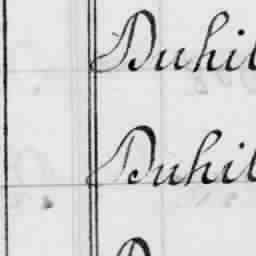 Duhil
Duhil